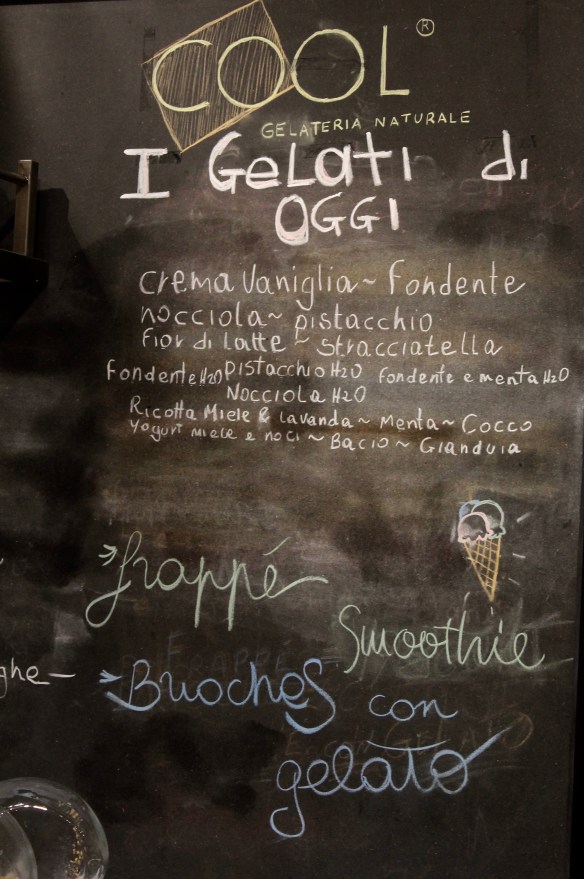 COOL®
GELATERIA NATURALE
I GeLati di
OGGI
crema Vaniglia ~ Fondente
nocciola ~ pistacchio
fior di Latte ~ stracciatella
Fondente H2O Pistacchio H2O fondente e menta H2O
Nocciola H2O
Ricotta Miele & Lavanda ~ Menta ~ Cocco
Yogurt miele e noci ~ Bacio ~ Gianduia
frappé
Smoothie
ghe
Brioches con
gelato